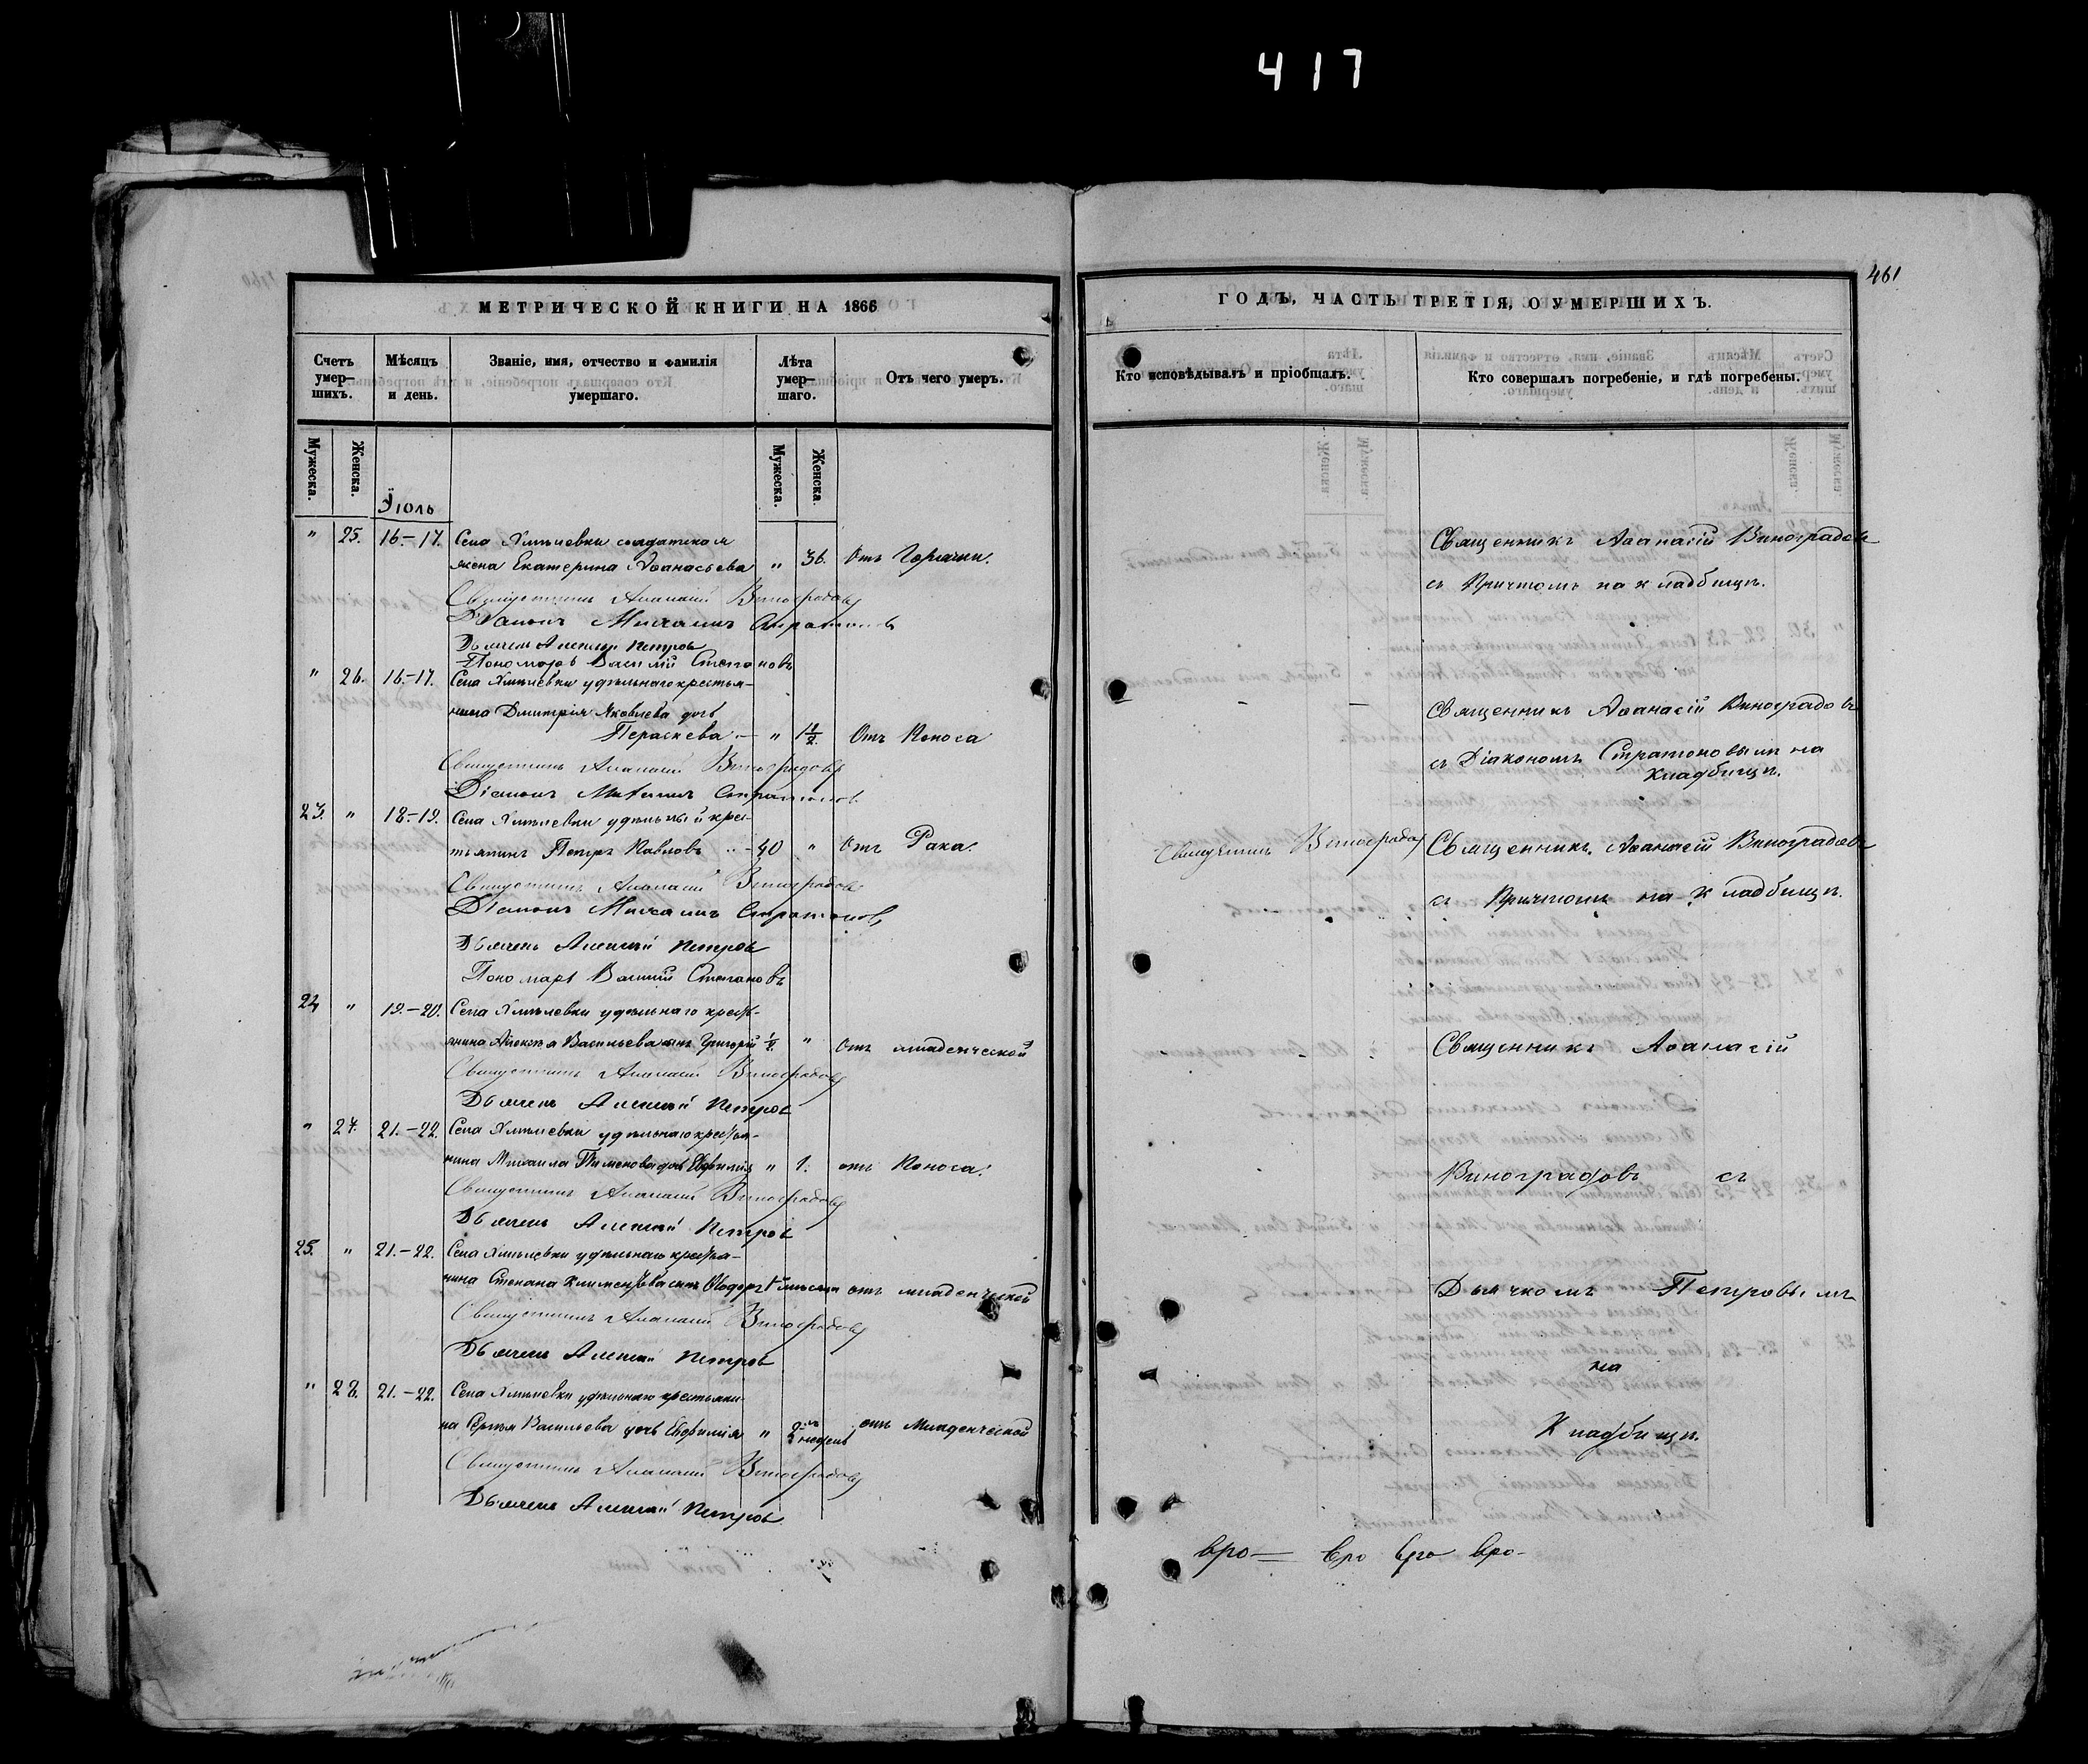 417
461
МЕТРИЧЕСКОЙ КНИГИ НА 1866
Счетъ умер-шихъ.
Мѣсяцъ и день.
Званіе, имя, отчество и фамилія умершаго.
Лѣта умер-шаго.
Отъ чего умеръ.
Мужеска.
Женска.
Мужеска.
Женска.
Іюль
" 25. 16.-17. Села Хмѣлевки солдатская
жена Екатерина Аѳанасьева " 36. Отъ Горячки.
Священникъ Аѳанасій Виноградовъ
Діаконъ Михаилъ Стратоновъ
Дьячекъ Алексѣй Петровъ
Пономарь Василій Степановъ
" 26. 16.-17. Села Хмѣлевки удѣльнаго крестья-
нина Дмитрія Яковлева дочь
Параскева - " 1 1/2. Отъ Поноса
Священникъ Аѳанасій Виноградовъ
Діаконъ Михаилъ Стратоновъ
23. " 18-19. Села Хмѣлевки удѣльный крес-
тьянинъ Петръ Павловъ 40 " Отъ Рака.
Священникъ Аѳанасій Виноградовъ
Діаконъ Михаилъ Стратоновъ
Дьячекъ Алексѣй Петровъ
Пономарь Василій Степановъ
24 " 19.-20. Села Хмѣлевки удѣльнаго кресть-
янина Васильева сынъ Григорій " Отъ младенческой
Священникъ Аѳанасій Виноградовъ
Дьячекъ Алексѣй Петровъ
" 27. 21.-22. Села Хмѣлевки удѣльнаго крестья-
нина Михаила Пименова дочь " 1. отъ Поноса.
Священникъ Аѳанасій Виноградовъ
Дьячекъ Алексѣй Петровъ
25. " 21.-22. Села Хмѣлевки удѣльнаго крестья-
нина Степана сынъ Ѳеодоръ отъ младенческой
Священникъ Аѳанасій Виноградовъ
Дьячекъ Алексѣй Петровъ
" 28. 21.-22. Села Хмѣлевки удѣльнаго крестьяни-
на Васильева дочь Евфимія " 2 недѣль отъ Младенческой
Священникъ Аѳанасій Виноградовъ
Дьячекъ Алексѣй Петровъ
ГОДЪ, ЧАСТЬ ТРЕТІЯ, О УМЕРШИХЪ.
Кто исповѣдывалъ и пріобщалъ.
Кто совершалъ погребеніе, и гдѣ погребены.
Священникъ Аѳанасій Виноградовъ
съ Причтомъ на кладбищѣ.
Священникъ Аѳанасій Виноградовъ
съ Діакономъ Стратоновымъ на
кладбищѣ.
Священникъ Виноградовъ Священникъ Аѳанасій Виноградовъ
съ Причтомъ на кладбищѣ.
Священникъ Аѳанасій
Виноградовъ съ
Дьячкомъ Петровымъ
на
Кладбищѣ.